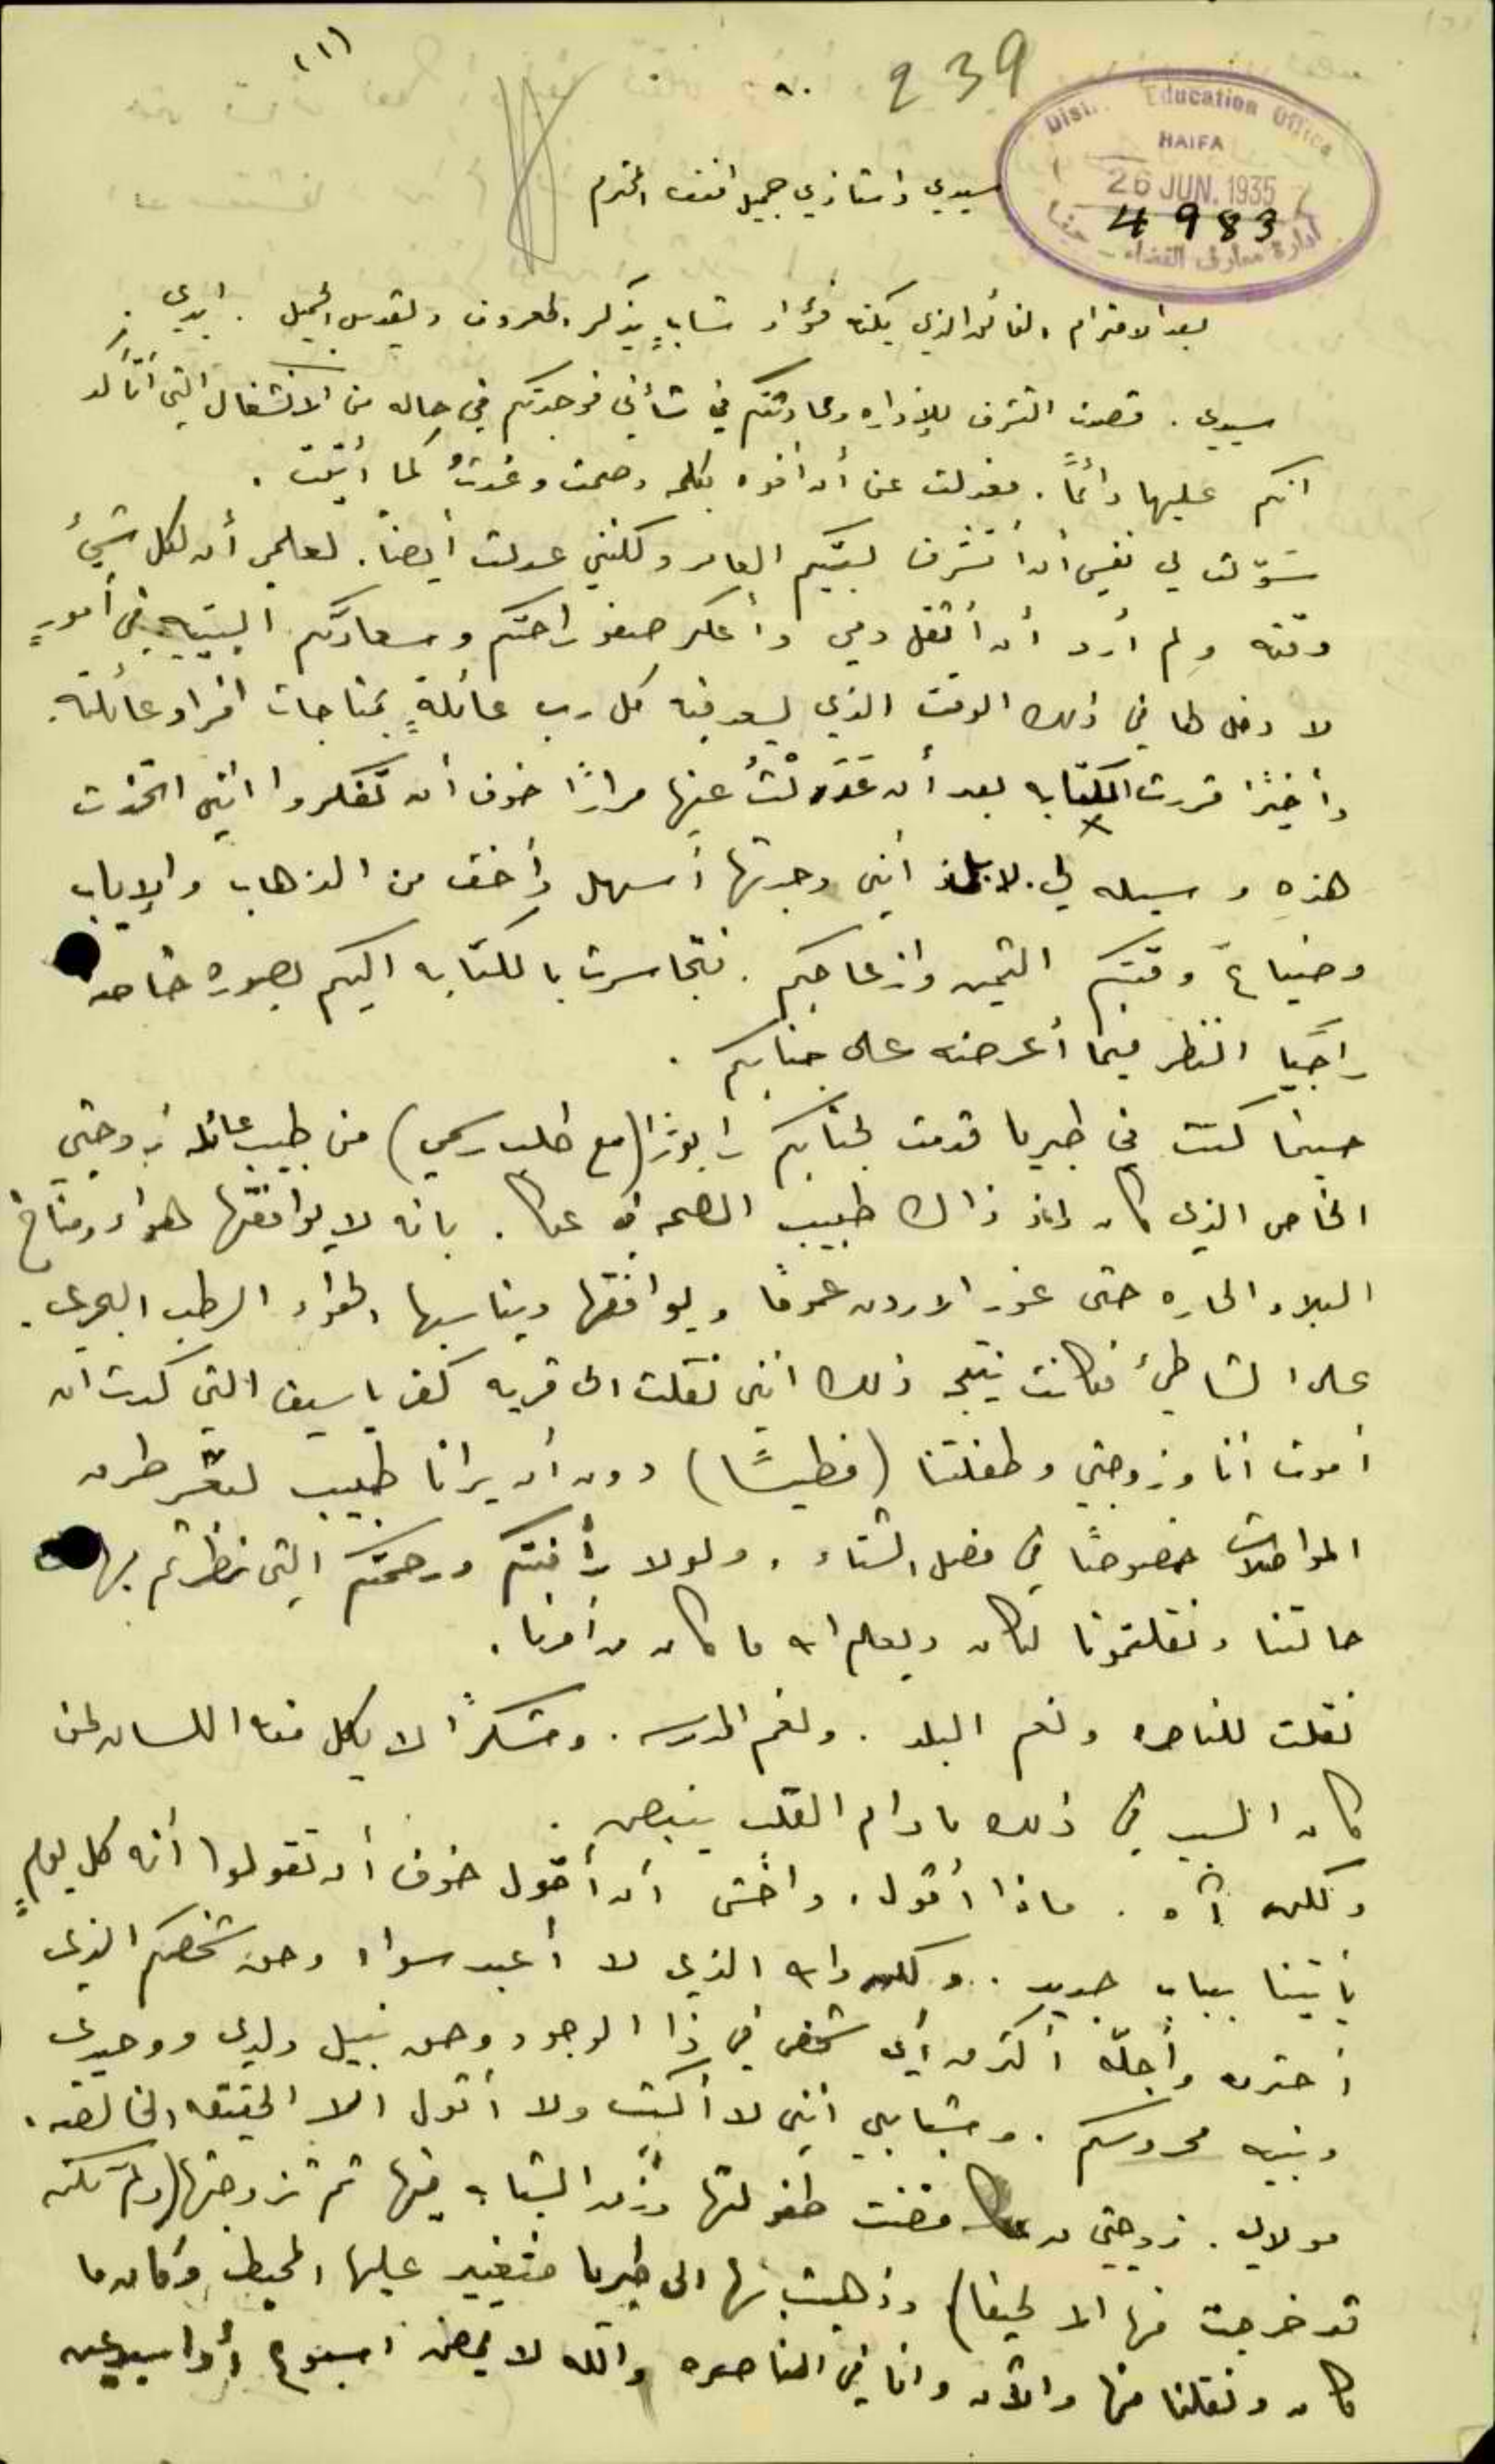 (١)
239
٩٠
Dist. Education Office
HAIFA
26 JUN. 1935
4983
ادارة معارف القضاء - حيفا
سيدي واستاذي جميل افندي المحترم
بعد الاحترام الفائق الذي يكنه فؤاد شاب يذكر المعروف ويقدس الجميل. ابدي.
سيدي. قصدت التشرف للإداره ومحادثتكم في شأني فوجدتكم في حاله من الانشغال التي أتأكد
انكم عليها دائماً. فعدلت عن أن أفوه بكلمه وصمت وعُدتُ كما أتيت.
سَوّلت لي نفسي أن أتشرف لبيتكم العامر ولكنني عدلت أيضاً. لعلمي أن لكل شيءٍ
وقته ولم أرد أن أثقل دمي وأعكر صفو راحتكم وسعادتكم البيتيه في أمورٍ
لا دخل لها في ذلك الوقت الذي يسعد فيه كل رب عائلةٍ بمناجات افراد عائلته.
وأخيرًا قررت الكتابه بعد أن عَدَلْتُ عنها مرارًا خوف أن تفكروا انني اتخذت
هذهِ وسيله لي. لا بل انني وجدتها أسهل وأخف من الذهاب والإياب
وضياع وقتكم الثمين وازعاجكم. فتجاسرت بالكتابه اليكم بصوره خاصه
راجيًا النظر فيما أعرضه على جنابكم.
حينما كنت في طبريا قدمت لجنابكم رابورًا (مع طلب رسمي) من طبيب عائلة زوجتي
الخاص الذي كان إذ ذاك طبيب الصحه في عكا. بانه لا يوافقها هواء ومناخ
البلاد الحاره حتى غور الاردن عمومًا ويوافقها ويناسبها الهواء الرطب البحري.
على الشاطئ فكانت نتيجة ذلك انني نقلت الى قريه كفر ياسيف التي كدت ان
أموت أنا وزوجتي وطفلتنا (فطيسًا) دون أن يرانا طبيب لتعسر طرق
المواصلات خصوصًا في فصل الشتاء. ولولا رأفتكم ورحمتكم التي نظرتم بها
حالتنا ونقلتمونا لكان ويعلم الله ما كان من أمرنا.
نقلت للناصره ونعم البلد. ونعم المدرسه. وشكرًا لا يكل منه اللسان لمن
كان السبب في ذلك ما دام القلب ينبض.
ولكن آه. ماذا أقول. واخشى أن أقول خوف أن تقولوا أنه كل يومٍ
يأتينا بباب جديد. ولكن والله الذي لا أعبد سواه وحق شخصكم الذي
أحترمه وأجلّه أكثر من أي شخص في ذا الوجود وحق نبيل ولدي ووحيدي
ونبيه محروسكم. وشبابي انني لا أكتب ولا أقول الا الحقيقه الخالصه.
مولاي. زوجتي من عكا قضت طفولتها وزمن الشباب فيها ثم تزوجتها (ولم تكن
قد خرجت منها الا لحيفا) وذهبت بها الى طبريا فتغير عليها المحيط وكان ما
كان ونقلنا منها والآن وانا في الناصره والله لا يمضي اسبوع أو اسبوعين